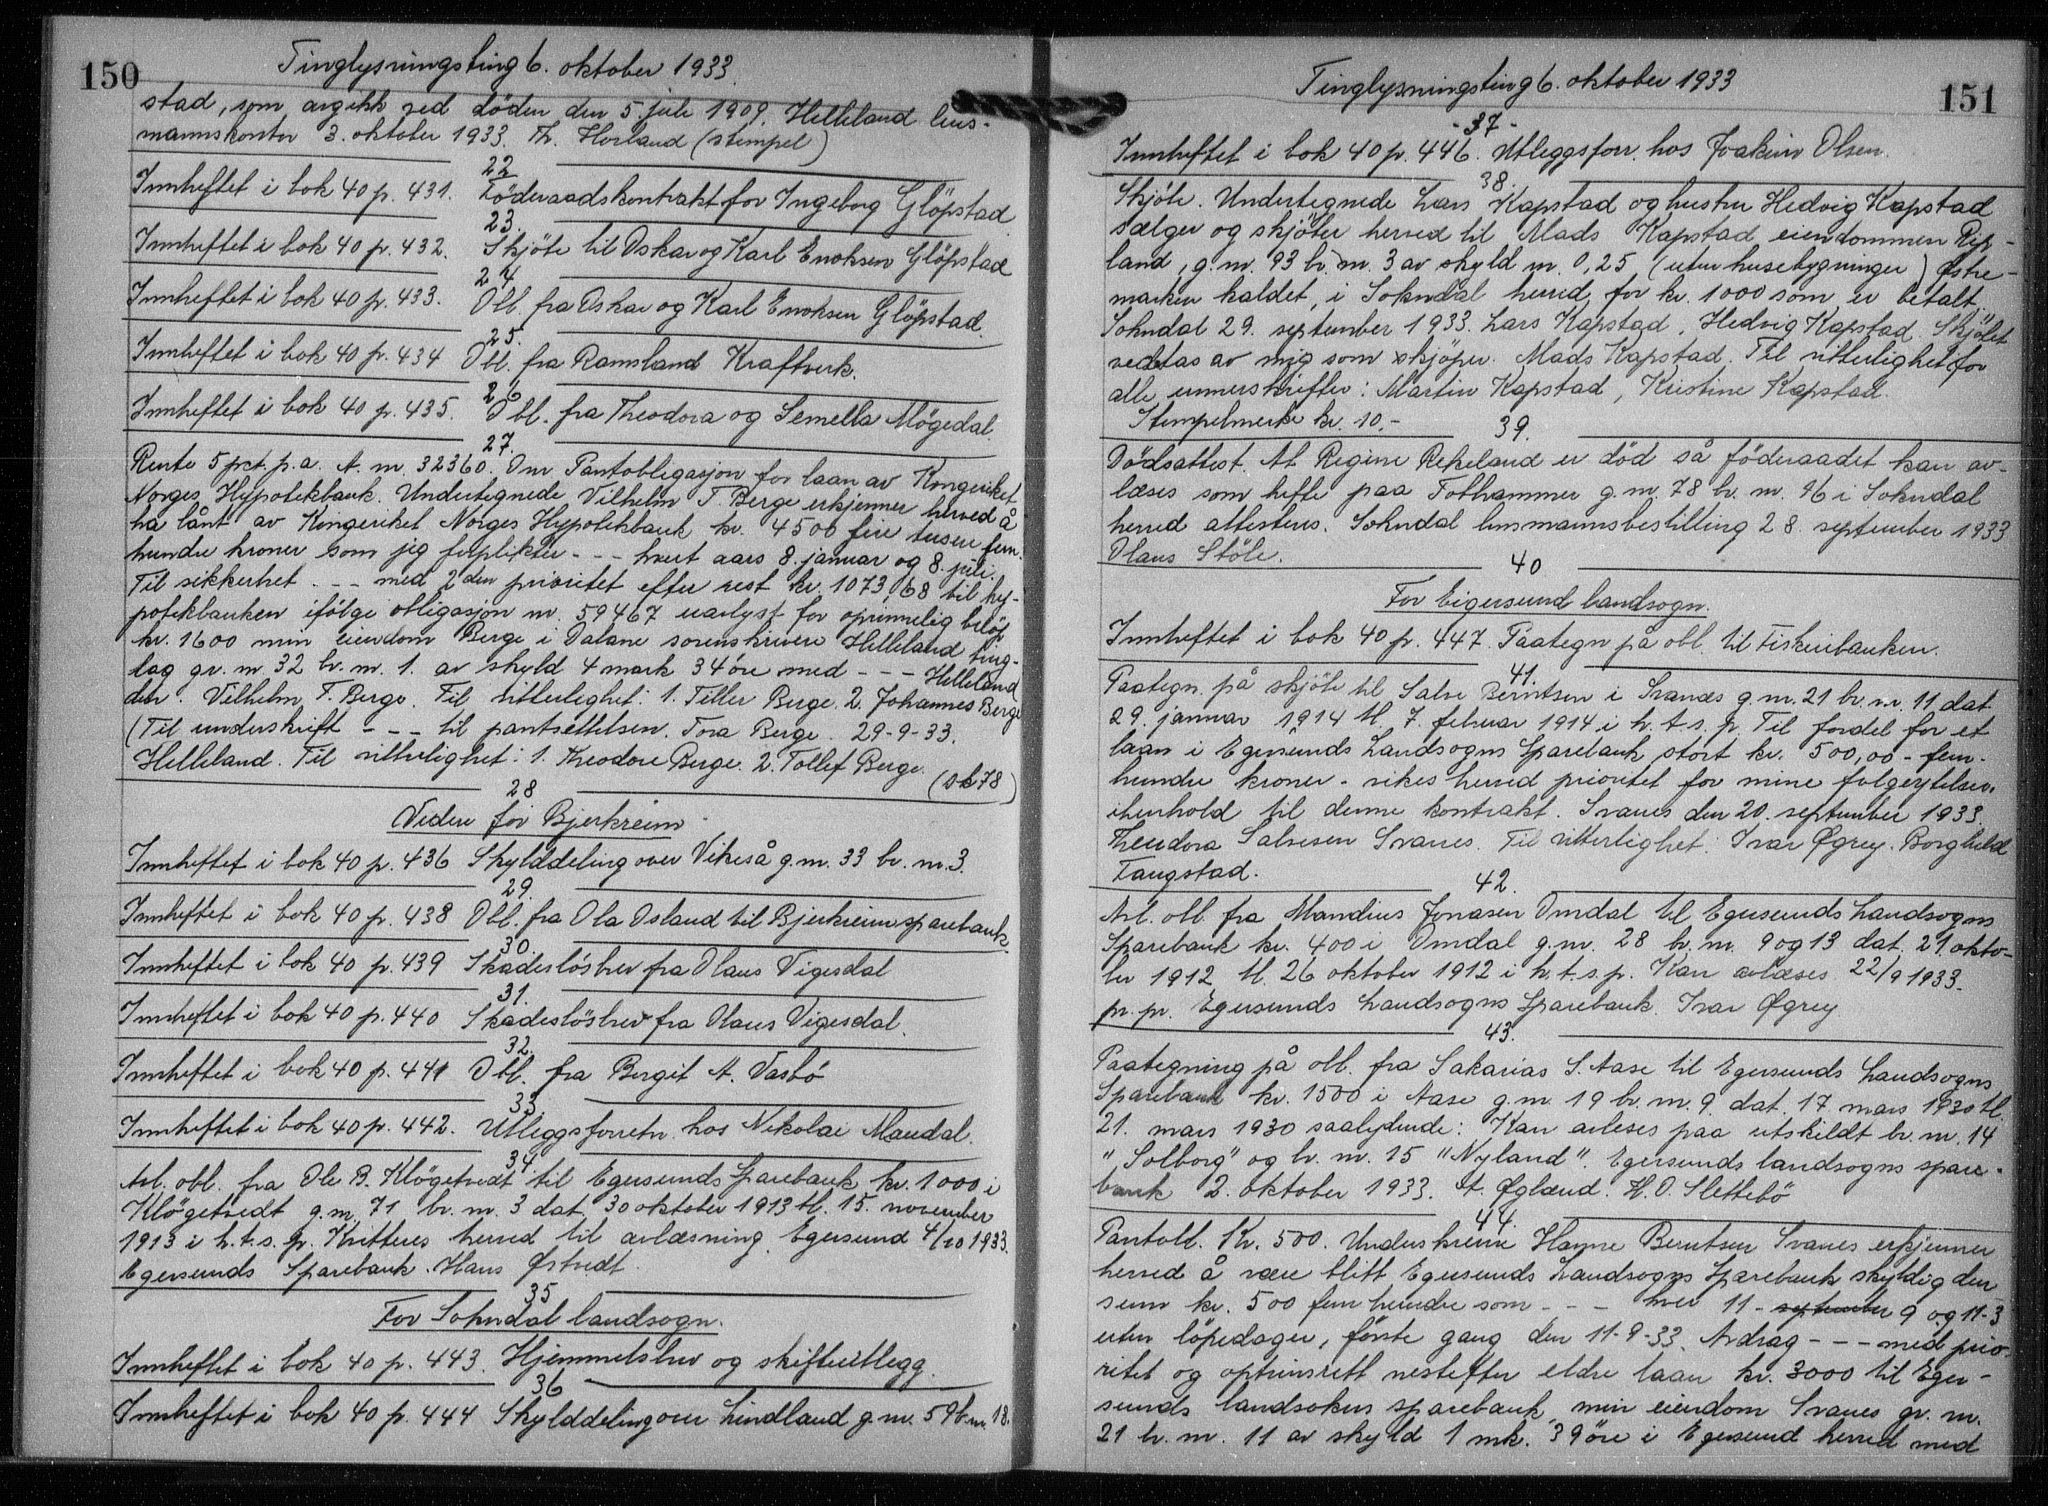 150
Tinglysningsting 6. oktober 1933.
stad, som avgikk ved döden den 5. juli 1909. Helleland lens-
mannskontor 3. oktober 1933. Th. Horland (stempel)
22
Innheftet i bok 40 p. 431. Föderaadskontrakt for Ingeborg Glöpstad.
23.
Innheftet i bok 40 p. 432. Skjöte til Oskar og Karl Enoksen Glöpstad
24
Innheftet i bok 40 p. 433. Obl. fra Oskar og Karl Enoksen Glöpstad.
25.
Innheftet i bok 40 p. 434 Obl. fra Ramsland Kraftverk.
26
Innheftet i bok 40 p. 435. Obl. fra Theodora og Semella Mögedal.
27.
Rente 5 pct. p.a. A. nr. 32360. Om Pantobligasjon for laan av Kongeriket
Norges Hypotekbank. Undertegnede Vilhelm T. Berge erkjenner herved å
ha lånt av Kongeriket Norges Hypotekbank kr. 4500 fire tusen fem
hundre kroner som jeg forplikter - - - hvert aars 8. januar og 8. juli.
Til sikkerhet - - - med 2den prioritet efter rest kr. 1073,68 til hy-
potekbanken ifölge obligasjon nr. 59467 uavlyst for oprinnelig belöp
kr. 1600 min eiendom Berge i Dalane sorenskriveri Helleland ting-
lag gr. nr. 32 br. nr. 1. av skyld 4 mark 34 öre med - - - Helleland
den. Vilhelm T. Berge. Til vitterlighet: 1. Tiller Berge. 2. Johannes Berge
(Til underskrift - - - til pantsettelsen. Tora Berge. 29-9-33.
Helleland. Til vitterlighet: 1. Theodore Berge. 2. Tollef Berge.
(78)
28
Videre for Bjerkreim
Innheftet i bok 40 p. 436 Skylddeling over Vikeså g.nr. 33 br. nr. 3.
29.
Innheftet i bok 40 p. 438 Obl. fra Ola Osland til Bjerkreim sparebank
30.
Innheftet i bok 40 p. 439 Skadeslösbrev fra Olaus Vigesdal
31.
Innheftet i bok 40 p. 440 Skadeslösbrev fra Olaus Vigesdal.
32.
Innheftet i bok 40 p. 441 Obl. fra Bergit A. Vasbö
33.
Innheftet i bok 40 p. 442. Utleggsforretn. hos Nikolai Maudal.
34.
Avl. obl. fra Ole B. Klögetvedt til Egersunds Sparebank kr. 1000 i
Klögetvedt g.nr. 71 br. nr. 3 dat. 30 oktober 1913 tl. 15. november
1913 i h.t.s. p. Kvitteres herved til avlæsning. Egersund 4/10 1933.
Egersunds Sparebank. Hans Østvedt.
35
For Sokndal landsogn.
Innheftet i bok 40 p. 443. Hjemmelsbrev og skifteutlegg.
36
Innheftet i bok 40 p. 444 Skylddeling over Lindland g.nr. 59 br. nr. 18.
Tinglysningsting 6. oktober 1933
151
-37-
Innheftet i bok 40 p. 446. Utleggsforr. hos Joakim Olsen.
38.
Skjöte. Undertegnede Lars Kapstad og hustru Hedvig Kapstad
sælger og skjöter herved til Mads Kapstad eiendommen Rip-
land, g.nr. 93 br. nr. 3 av skyld m. 0,25 (uten husebygninger) Østre-
marken kaldet, i Sokndal herred for kr. 1000 som er betalt.
Sokndal 29. september 1933. Lars Kapstad. Hedvig Kapstad. Skjötet
vedtas av mig som skjöper. Mads Kapstad. Til vitterlighet for
alle unnerskrifter: Martin Kapstad, Kristine Kapstad.
Stempelmerke kr. 10.-
39.
Dödsattest. At Regine Rekeland er död så föderaadet kan av-
læses som hefte paa Fothammer g.nr. 78 br. nr. 26 i Sokndal
herred attesteres. Sokndal lensmannsbestilling 28. september 1933
Olaus Stöle.
40
For Eigersund landsogn.
Innheftet i bok 40 p. 447. Paategn på obl. til Fiskeribanken.
41.
Paategn. på skjöte til Salve Berntsen i Svanes g.nr. 21 br. nr. 11 dat
29. januar 1914 tl. 7. februar 1914 i h.t.s. p. Til fordel for et
laan i Egersunds Landsogns Sparebank stort kr. 500,00 - fem-
hundre kroner - vikes herved prioritet for mine folgeytelser
i henhold til denne kontrakt. Svanes den 20. september 1933.
Theodora Salvesen Svanes. Til vitterlighet: Ivar Øgrey. Borghild
Faugstad.
42.
Avl. obl. fra Mandius Jonasen Omdal til Egersunds Landsogns
Sparebank kr. 400 i Omdal g.nr. 28 br. nr. 9 og 13 dat. 21. okto-
ber 1912 tl. 26 oktober 1912 i h.t.s. p. Kan avlæses. 22/9 1933.
pr. pr. Egersunds Landsogns Sparebank. Ivar Øgrey
43.
Paategning på obl. fra Sakarias S. Aase til Egersunds Landsogns
Sparebank kr. 1500 i Aase g.nr. 19 br. nr. 9. dat. 17 mars 1930 tl.
21. mars 1930 saalydende: Kan avleses paa utskildt br. nr. 14
"Solborg" og br. nr. 15 "Nyland". Egersunds landsogns spare-
bank 2. oktober 1933. A. Øglænd. H. O. Slettebö
44.
Pantobl. Kr. 500. Underskrevne Hanne Berntsen Svanes erkjenner
herved å være blitt Egersunds Landsogns Sparebank skyldig den
sum kr. 500 fem hundre som - - - hver 11- september 9 og 11-3
uten löpedager, förste gang den 11-9-33. Avdrag - - - med prio-
ritet og optrinsrett nestefter eldre laan kr. 3000 til Eger-
sunds landsokns sparebank min eiendom Svanes gr. nr.
21 br. nr. 11 av skyld 1 mk. 39 öre i Egersund herred med